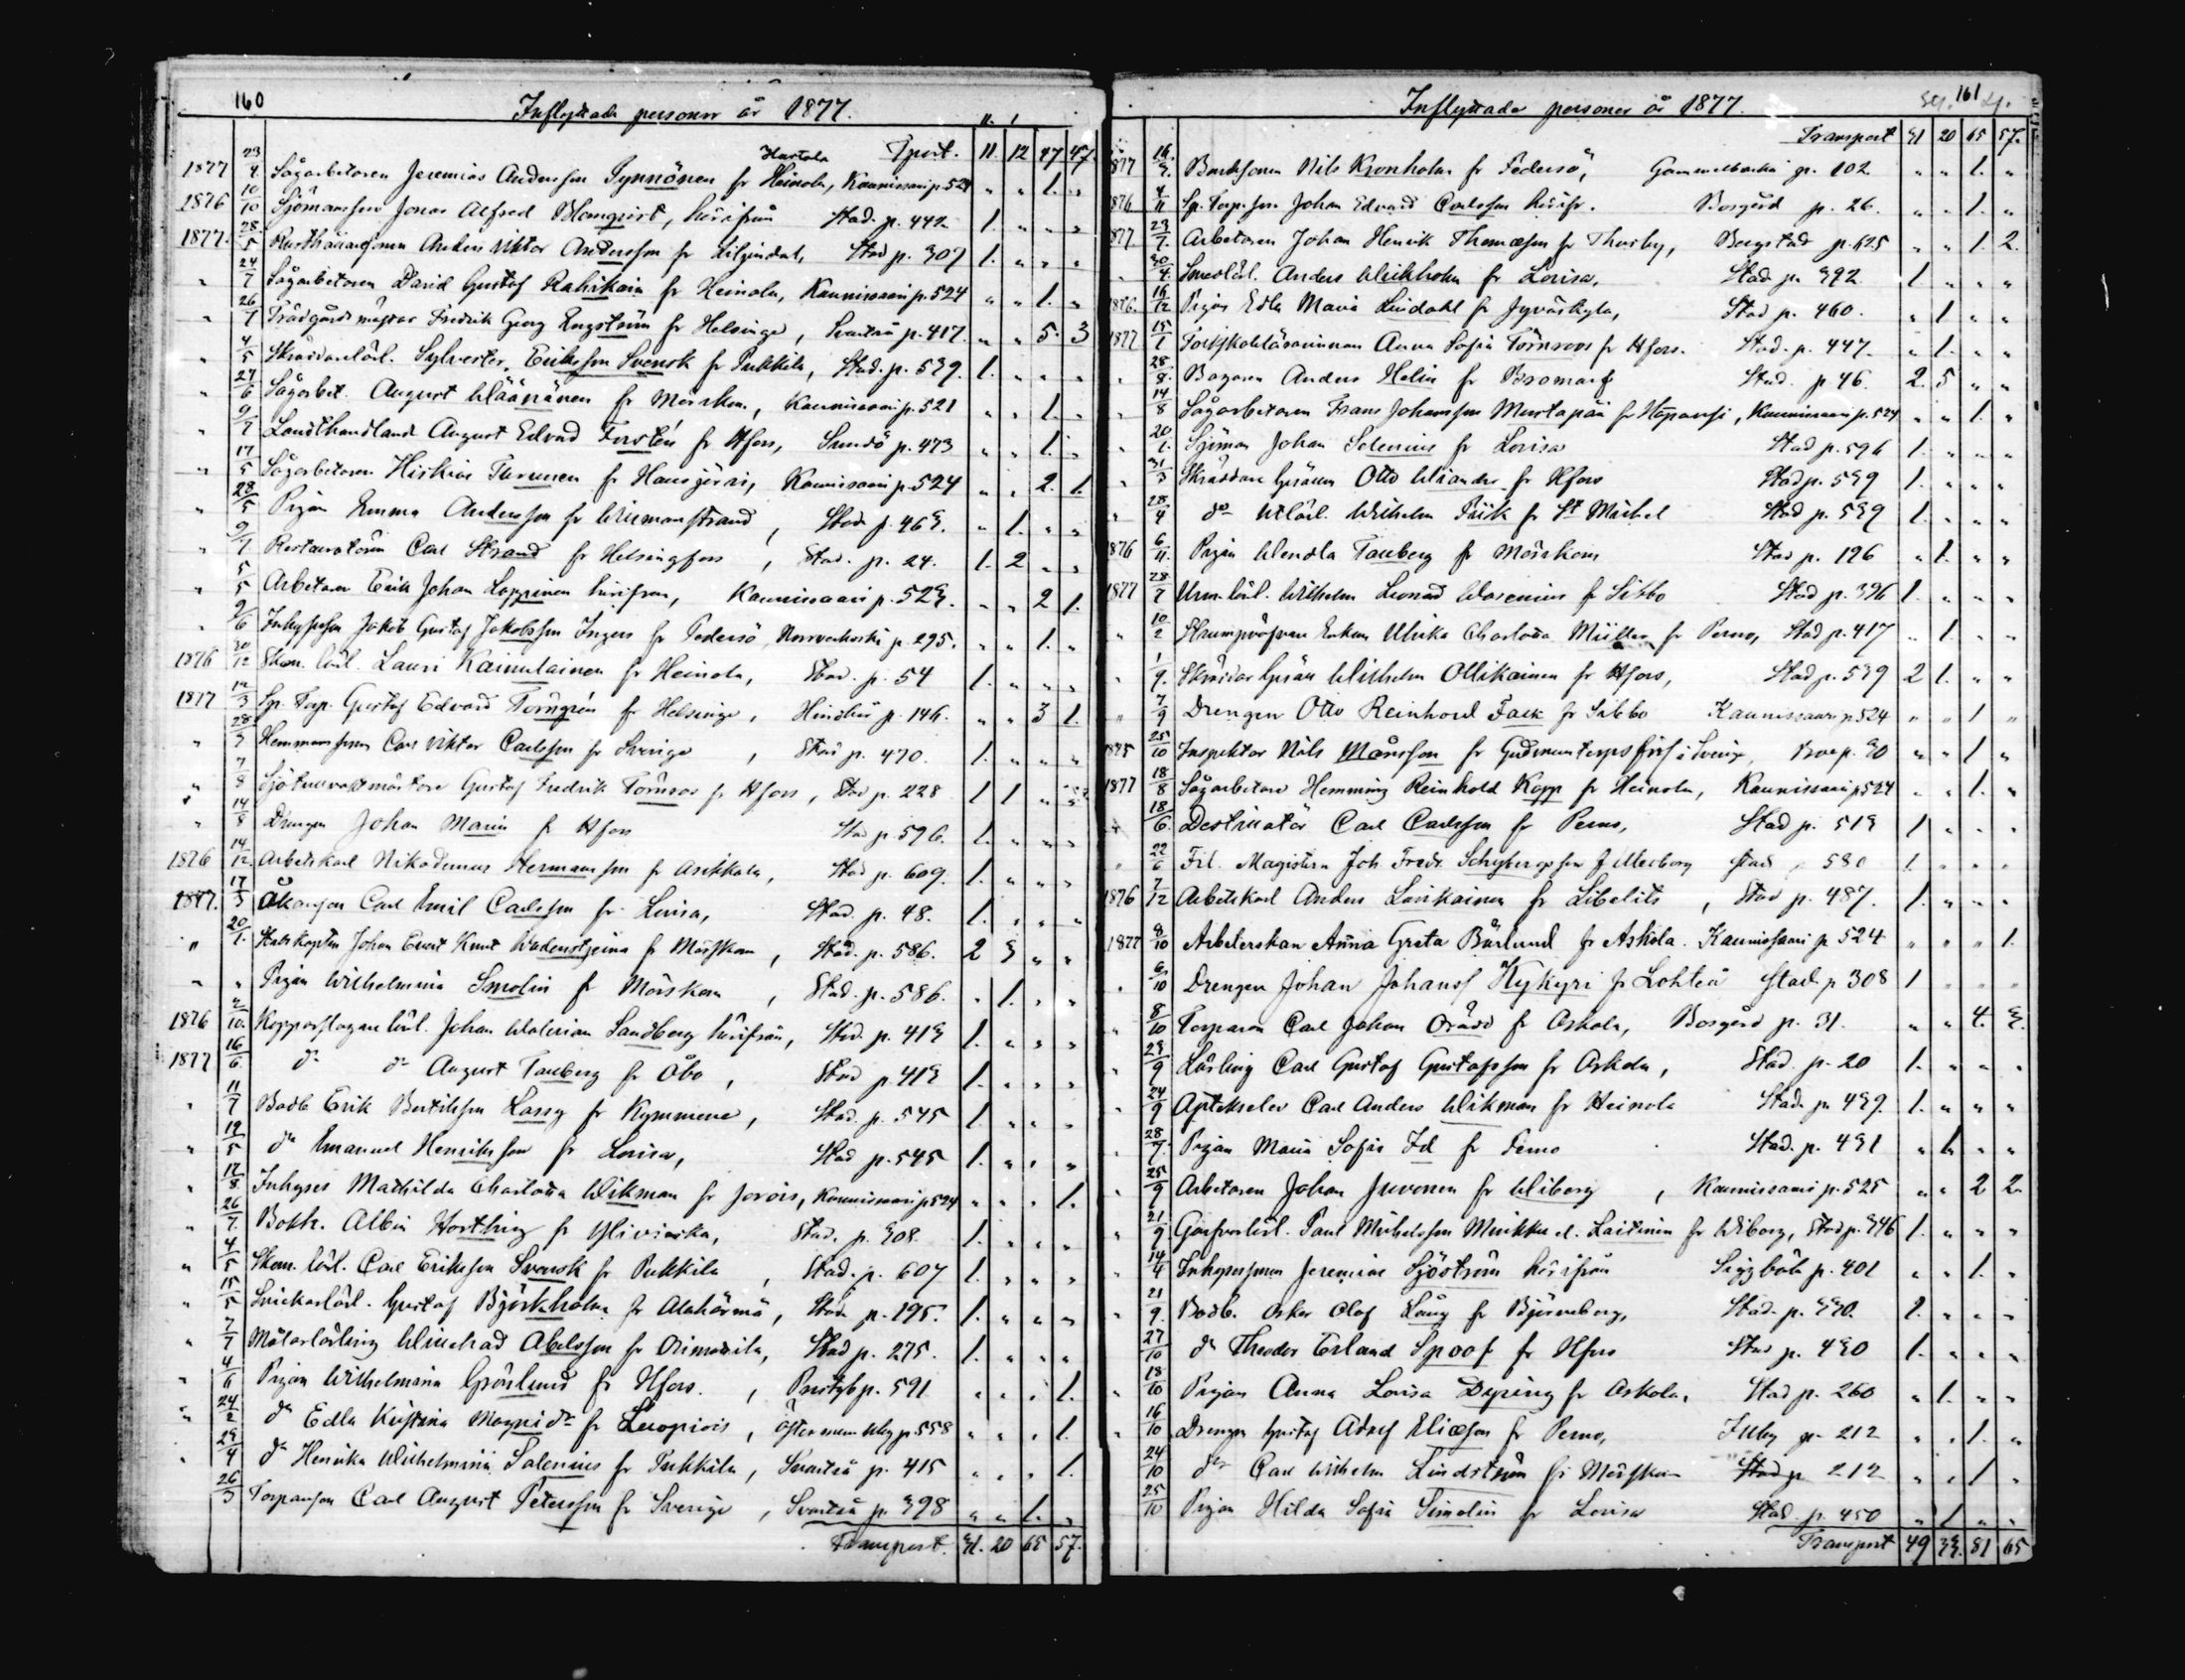 160
Inflyttade personer år 1877.
Tport. 11. 12 47 47.
Hartola
1877 23/4 Sågarbetaren Jeremias Andersson Synnönen fr Heinola, Kaunissaari p. 524 " " 1. "
1876 10/10 Sjömansson Jonas Alfred Blomqvist, härifrån Stad. p. 442 1. " " "
1877. 28/5 Rusthållarsonen Anders Viktor Andersson fr Liljendal, Stad p. 307 1. " " "
" 24/7 Sågarbetaren David Gustaf Rahikain fr Heinola, Kaunissaari p. 524 " " 1. "
" 26/7 Trädgårdsmästar Fredrik Georg Engström fr Helsinge, Svartsä p. 417. " " 5. 3
" 4/5 Skräddarlärl. Sylvester Eriksson Svensk fr Pukkila, Stad. p. 539. 1. " " "
" 27/6 Sågarbet. August Wäänänen fr Mörskom, Kaunissaari p. 521 " " 1. "
" 9/7 Landthandland August Edvard Forstén fr Hfors, Sundö p. 473 " " 1. "
" 17/5 Sågarbetaren Hiskias Turunen fr Hausjärvi, Kaunissaari p. 524 " " 2. 1.
" 28/5 Pigan Emma Andersson fr Wilmanstrand, Stad p. 463. " 1. " "
" 9/7 Restauratören Carl Strand fr Helsingfors, Stad. p. 24. 1. 2 " "
" 5/5 Arbetaren Erik Johan Loppinen härifrån, Kaunissaari p. 523. " " 2 1.
" 9/6 Inhysesson Jakob Gustaf Jakobsson Ingers fr Pedersö, Norrveckoski p. 295. " " 1. "
1876 30/12 Skom. lärl. Lauri Kainulainen fr Heinola, Stad. p. 54 1. " " "
1877 12/3 Sp. Torp. Gustaf Edvard Törngrén fr Helsinge, Hindhår p. 146. " " 3 1.
" 28/3 Hemmansson Carl Viktor Carlsson fr Sverige, Stad p. 470. 1. " " "
" 7/8 Gustaf Fredrik Törnroos fr Hfors, Stad p. 228 1 1 "
" 14/8 Drengen Johan Marin fr Hfors Stad p. 596. 1. " " "
1876 14/12. Arbetskarl Nikodemus Hermansson fr Asikkala, Stad p. 609. 1. " " "
1877. 17/3 Åkarson Carl Emil Carlsson fr Lovisa, Stad. p. 48. 1. " " "
" 20/7. Stabskapten Johan Evert Knut Wadenstjerna fr Mörskom, Stad. p. 586. 2 3 " "
" " Pigan Wilhelmina Smolin fr Mörskom, Stad. p. 586. " 1. " "
1876 2/10. Kopparslagare lärl. Johan Walerian Sandberg härifrån, Stad. p. 413 1. " " "
1877 16/6. do do August Tauberg fr Åbo, Stad p. 413 1. " " "
" 11/7 Bodb Erik Bertilsson Lassy fr Kymmene, Stad. p. 545 1. " " "
" 12/5 do Emanuel Henriksson fr Lovisa, Stad p. 545 1. " " "
" 12/8 Inhyses Mathilda Charlotta Wikman fr Jorois, Kaunissaari p. 524 " " " 1.
" 26/7. Bokh. Albin Horthing fr Ylivieska, Stad. p. 308 1. " " "
" 4/5 Skom. lärl. Carl Eriksson Svensk fr Pukkila, Stad. p. 607 1. " " "
" 15/5 Snickarlärl. Gustaf Björkholm fr Alahärmä, Stad. p. 195. 1. " " "
" 7/7 Målarlärling Winehad Abelsson fr Orimattila, Stad p. 275. 1. " " "
" 4/6 Pigan Wilhelmina Grönlund fr Hfors., Prestgb p. 591. " " " 1.
" 24/2 do Edla Kristina Magnidr fr Kuopio, p. 558 " " " 1.
" 23/4 do Henrika Wilhelmina Salenius fr Pukkila, Svartsä p. 415 " " " 1.
26/3 Torparson Carl August Petersson fr Sverige, Svartsä p. 398 " " 1. "
Transport. 31. 20 65 57.
161
Inflyttade personer år 1877.
Transport 31 20 65 57.
1877 16/3. Bondsonen Nils Kronholm fr Pedersö, Gammelbacka p. 102 " " 1. "
1876 4/11 Sp. Torp. son Johan Edvard Carlsson härifr. Bosgård p. 26. " " 1. "
1877 23/7. Arbetaren Johan Henrik Thomasson fr Thusby, Bergstad p. 625 " " 1. 2.
" 30/4. Smedslärl. Anders Wickholm fr Lovisa, Stad p. 392 1 " " "
1876. 16/12 Pigan Edla Maria Lindahl fr Jyväskylä, Stad p. 460. " 1 " "
1877 15/1 Folkskollärarinnan Anna Sofia Törnroos fr Hfors. Stad. p. 447. " 1. " "
" 28/8. Bagaren Anders Helin fr Bromarf Stad. p 46. 2. 5 " "
" 14/8 Sågarbetaren Frans Johansson Mustapää fr Haapavesi, Kaunissaari p. 524 " " 1. "
" 20/1. Sjöman Johan Selenius fr Lovisa Stad p. 596 1. " " "
" 31/3 Skräddare Gesällen Otto Wiander fr Hfors Stad p. 539 1. " " "
" 28/4 do utlärl. Wilhelm Piik fr St Michel Stad p. 539 1. " " "
1876 6/11. Pigan Wendla Tauberg fr Mörskom Stad p. 196 " 1. " "
1877 28/7 Urm. lärl. Wilhelm Leonard Wasenius fr Sibbo Stad p. 396 1. " " "
" 10/2 Enkan Ulrika Charlotta Müller fr Perno, Stad p. 417 " 1. " "
" 1/9. Skräddar Gesäll Wilhelm Ollikainen fr Hfors, Stad p. 539 2 1. " "
" 7/9 Drengen Otto Reinhold Falk fr Sibbo Kaunissaari p 524 " " 1 "
1875 25/10 Inspektor Nils Månsson fr Gudmuntorps förs i Sverige, p. 30 " " 1 "
1877 18/8 Sågarbetare Hemming Reinhold Kopp fr Heinola, Kaunissaari p 524 " " 1. "
" 18/6. Destilatör Carl Carlsson fr Perno, Stad p. 513 1 " " "
" 22/6 Fil. Magistern Joh Fredr Schybergsson fr Uleåborg Stad p 580 1. " " "
1876 7/12 Arbetskarl Anders Laukainen fr Libelits, Stad p. 487. 1. " " "
1877 8/10 Arbeterskan Anna Greta Bärlund fr Askola. Kaunissaari p 524 " " " 1.
" 6/10 Drengen Johan Johansf Kykyri fr Lohteå Stad p 308 1 " " "
" 8/10 Torparen Carl Johan Orådd fr Askola, Bosgård p. 31. " " 4. 3.
" 23/9 Lärling Carl Gustaf Gustafsson fr Askola, Stad. p. 20 1. " " "
" 24/9 Aptekselev Carl Anders Wikman fr Heinola Stad. p. 439. 1. " " "
" 28/9. Pigan Maria Sofia Id fr Perno Stad. p. 431 " 1. " "
" 25/9 Arbetaren Johan Juvonen fr Wiborg, Kaunissaari p. 525 " " 2 2.
" 21/9 Garfvarlärl. Paul Mickelsson Muikku el. Laitinen fr Wiborg, Stad p. 346 1. " " "
" 14/4 Inhysessonen Jeremias Sjöström härifrån Siggböle p. 401 " " 1. "
" 21/9. Bodb. Oskar Olof Läng fr Björneborg, Stad. p. 330. 1. " " "
" 27/10 do Theodor Erland Spoof fr Hfors Stad p. 430 1. " " "
18/10 Pigan Anna Lovisa Dyring fr Askola, Stad p. 260 " 1. " "
" 16/10 Drengen Gustaf Adolf Eliasson fr Perno, Illby p. 212 " " 1. "
24/10 do Carl Wilhelm Lindström fr Mörskom Stad p 212 " " 1 "
25/10 Pigan Hilda Sofia Simolin fr Lovisa Stad. p. 450 " 1 " "
Transport 49 33. 81 65